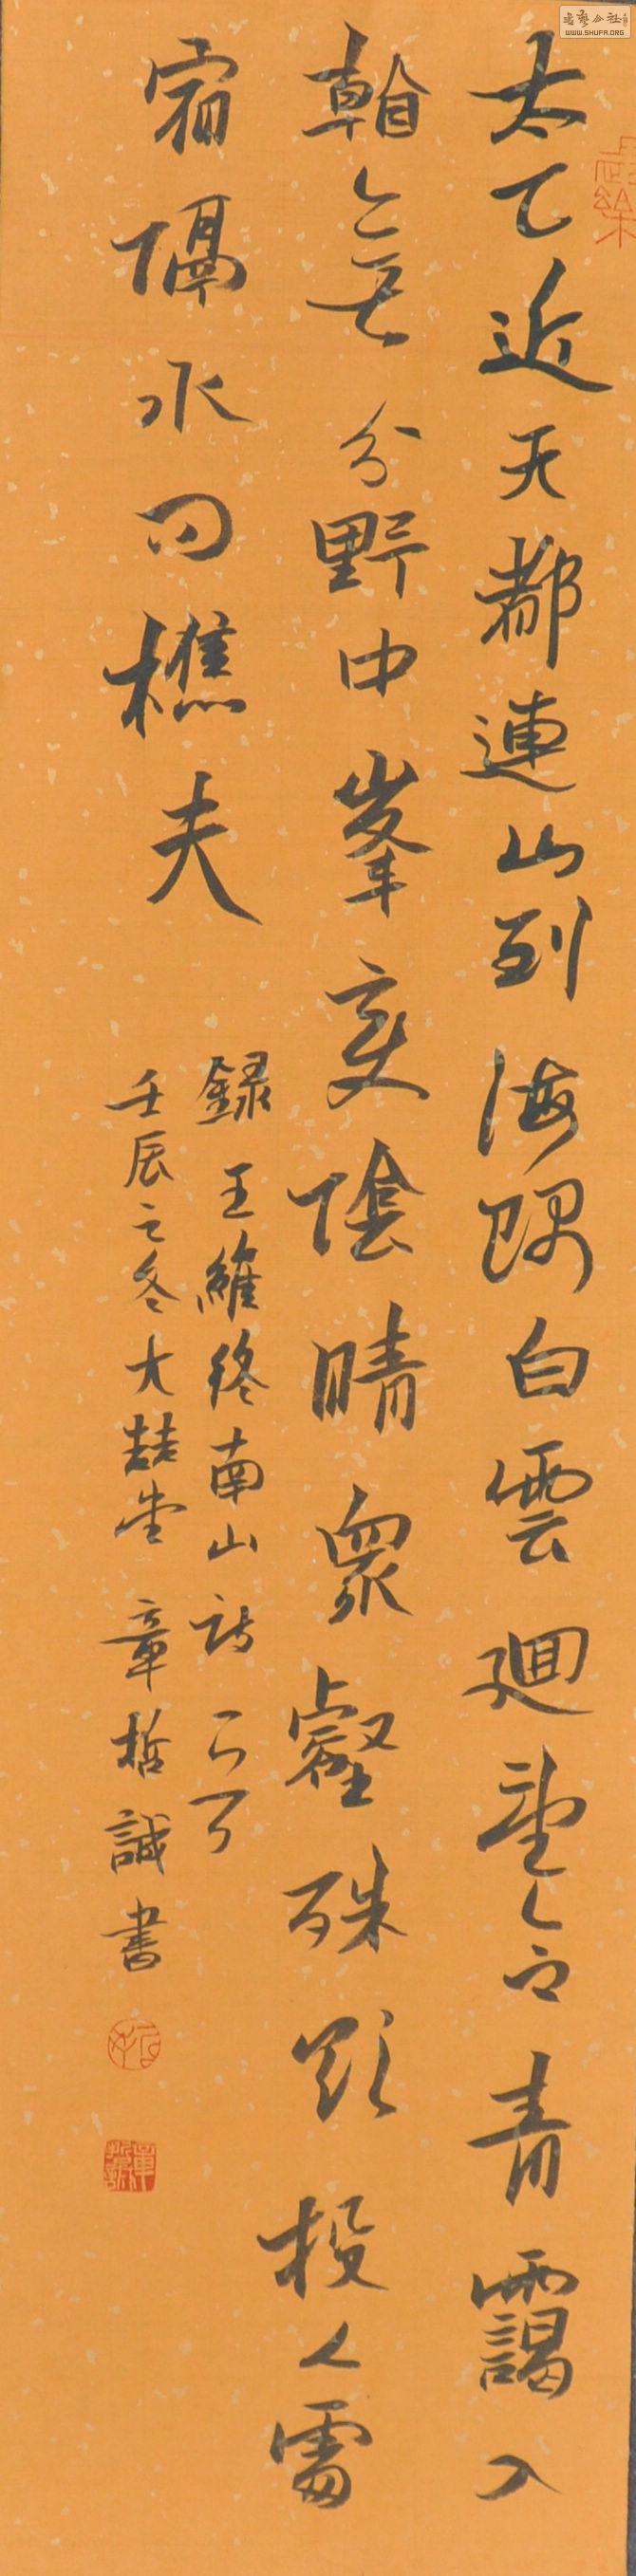 書藝公社
WWW.SHUFA.ORG
太乙近天都連山到海隅白雲迴望合青靄入
看無分野中峯變陰晴眾壑殊欲投人處
宿隔水問樵夫
錄王維終南山詩一首
壬辰之冬大喆堂 章哲誠書